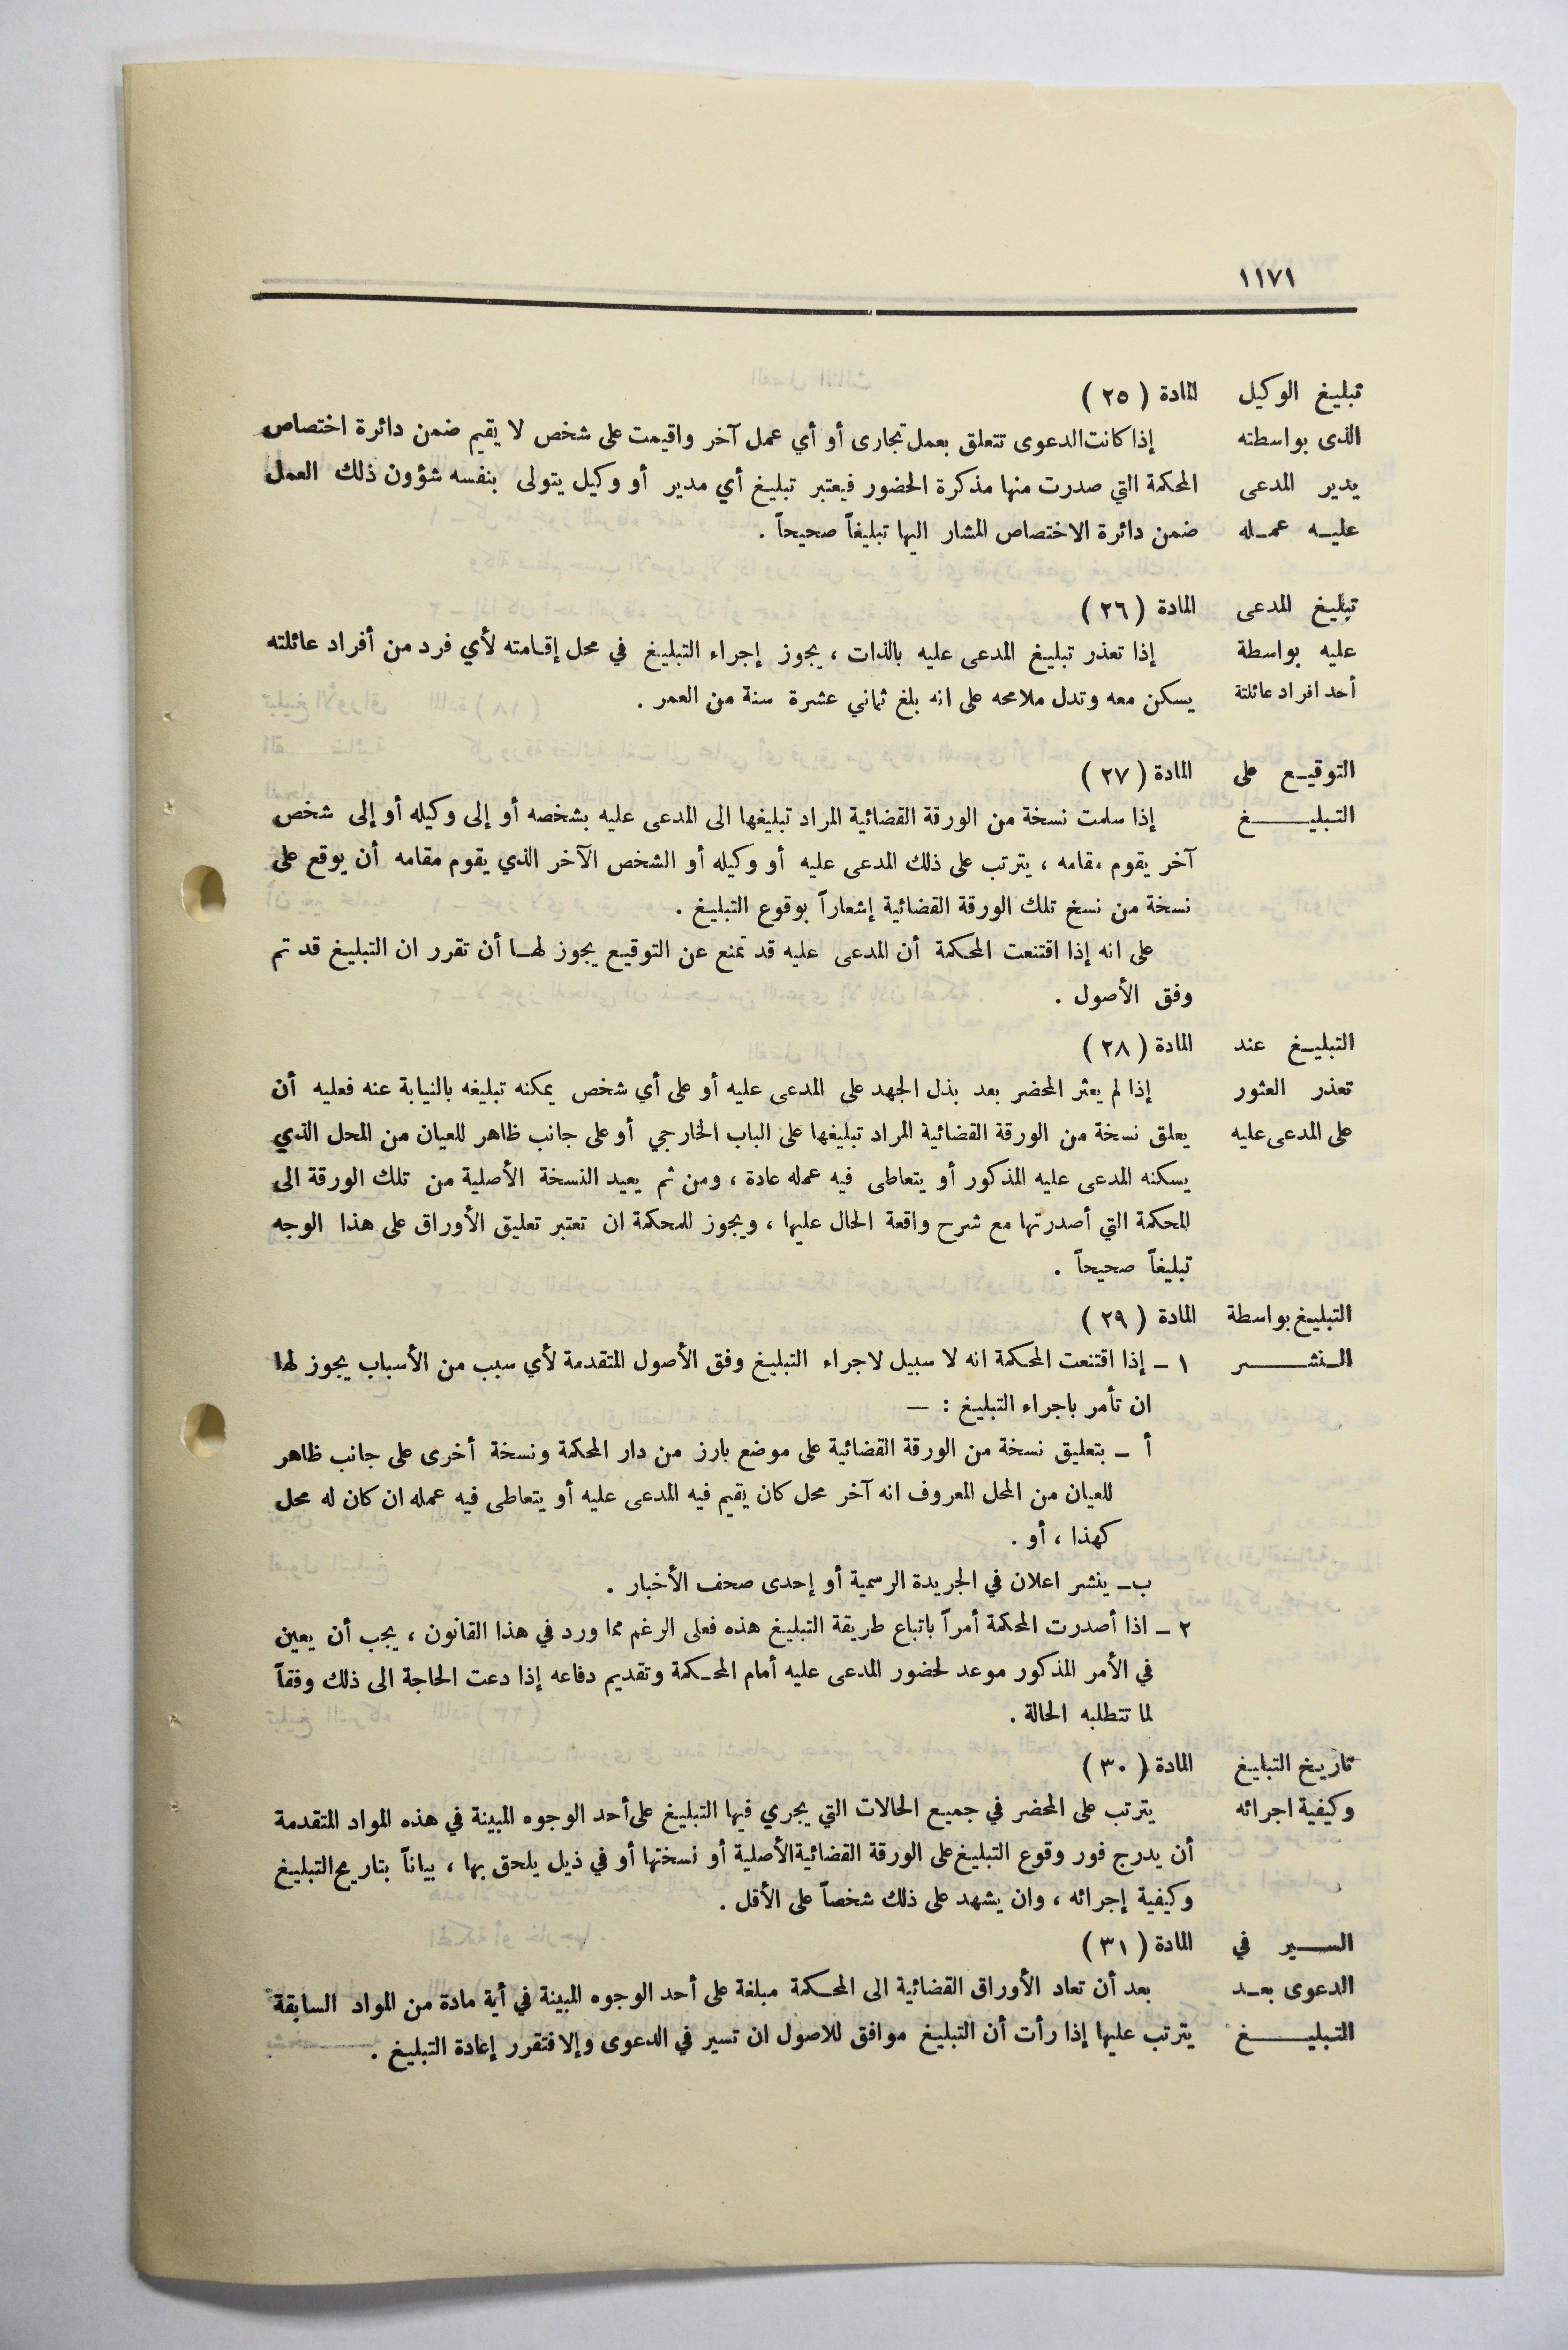 ١١٧١
تبليغ الوكيل المادة (٢٥)
الذى بواسطته إذا كانت الدعوى تتعلق بعمل تجارى أو أي عمل آخر واقيمت على شخص لا يقيم ضمن دائرة اختصاص
يدير المدعى المحكمة التي صدرت منها مذكرة الحضور فيعتبر تبليغ أي مدير أو وكيل يتولى بنفسه شؤون ذلك العمل
عليه عمله ضمن دائرة الاختصاص المشار اليها تبليغاً صحيحاً .
تبليغ المدعى المادة (٢٦)
عليه بواسطة إذا تعذر تبليغ المدعى عليه بالذات ، يجوز إجراء التبليغ في محل إقامته لأي فرد من أفراد عائلته
أحد افراد عائلتة يسكن معه وتدل ملامحه على انه بلغ ثماني عشرة سنة من العمر .
التوقيع على المادة (٢٧)
التبليغ إذا سلمت نسخة من الورقة القضائية المراد تبليغها الى المدعى عليه بشخصه أو إلى وكيله أو إلى شخص
آخر يقوم مقامه ، يترتب على ذلك المدعى عليه أو وكيله أو الشخص الآخر الذي يقوم مقامه أن يوقع على
نسخة من نسخ تلك الورقة القضائية إشعاراً بوقوع التبليغ .
على انه إذا اقتنعت المحكمة أن المدعى عليه قد تمنع عن التوقيع يجوز لها أن تقرر ان التبليغ قد تم
وفق الأصول .
التبليغ عند المادة (٢٨)
تعذر العثور إذا لم يعثر المحضر بعد بذل الجهد على المدعى عليه أو على أي شخص يمكنه تبليغه بالنيابة عنه فعليه أن
على المدعى عليه يعلق نسخة من الورقة القضائية المراد تبليغها على الباب الخارجي أو على جانب ظاهر للعيان من المحل الذي
يسكنه المدعى عليه المذكور أو يتعاطى فيه عمله عادة ، ومن ثم يعيد النسخة الأصلية من تلك الورقة الى
المحكمة التي أصدرتها مع شرح واقعة الحال عليها ، ويجوز للمحكمة ان تعتبر تعليق الأوراق على هذا الوجه
تبليغاً صحيحاً .
التبليغ بواسطة المادة (٢٩)
النشر ١ – إذا اقتنعت المحكمة انه لا سبيل لاجراء التبليغ وفق الأصول المتقدمة لأي سبب من الأسباب يجوز لها
ان تأمر باجراء التبليغ : —
أ – بتعليق نسخة من الورقة القضائية على موضع بارز من دار المحكمة ونسخة أخرى على جانب ظاهر
للعيان من المحل المعروف انه آخر محل كان يقيم فيه المدعى عليه أو يتعاطى فيه عمله ان كان له محل
كهذا ، أو .
ب – ينشر اعلان في الجريدة الرسمية أو إحدى صحف الأخبار .
٢ – اذا أصدرت المحكمة أمراً باتباع طريقة التبليغ هذه فعلى الرغم مما ورد في هذا القانون ، يجب أن يعين
في الأمر المذكور موعد لحضور المدعى عليه أمام المحكمة وتقديم دفاعه إذا دعت الحاجة الى ذلك وفقاً
لما تتطلبه الحالة .
تاريخ التبليغ المادة (٣٠)
وكيفية اجرائه يترتب على المحضر في جميع الحالات التي يجري فيها التبليغ على أحد الوجوه المبينة في هذه المواد المتقدمة
أن يدرج فور وقوع التبليغ على الورقة القضائية الأصلية أو نسختها أو في ذيل يلحق بها ، بياناً بتاريخ التبليغ
وكيفية إجرائه ، وان يشهد على ذلك شخصاً على الأقل .
السير في المادة (٣١)
الدعوى بعد بعد أن تعاد الأوراق القضائية الى المحكمة مبلغة على أحد الوجوه المبينة في أية مادة من المواد السابقة
التبليغ يترتب عليها إذا رأت أن التبليغ موافق للاصول ان تسير في الدعوى وإلا فتقرر إعادة التبليغ .